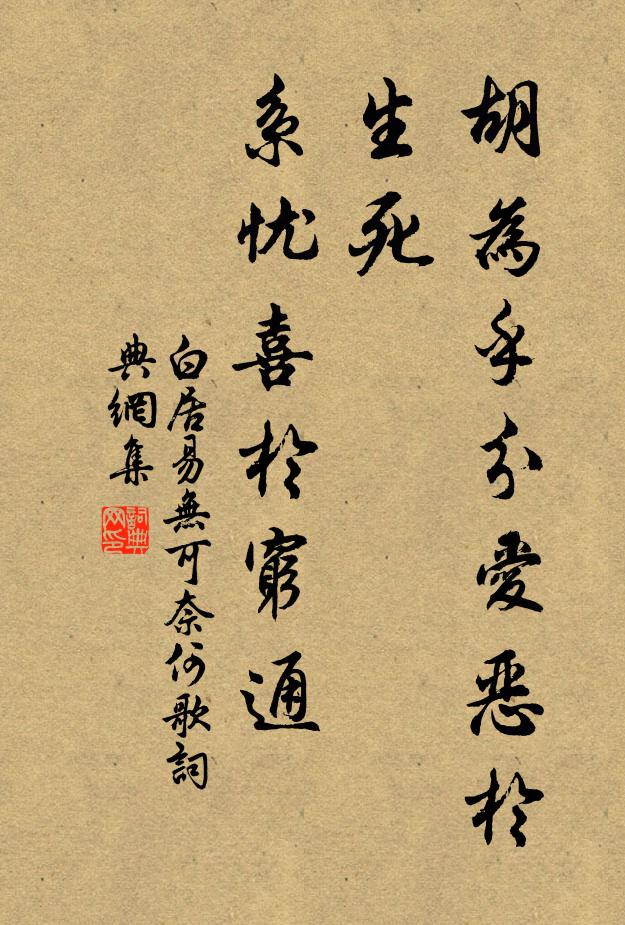 胡為乎分愛惡於
生死
系忧喜於窮通
白居易無可奈何歌詞
典網集
詞典网印